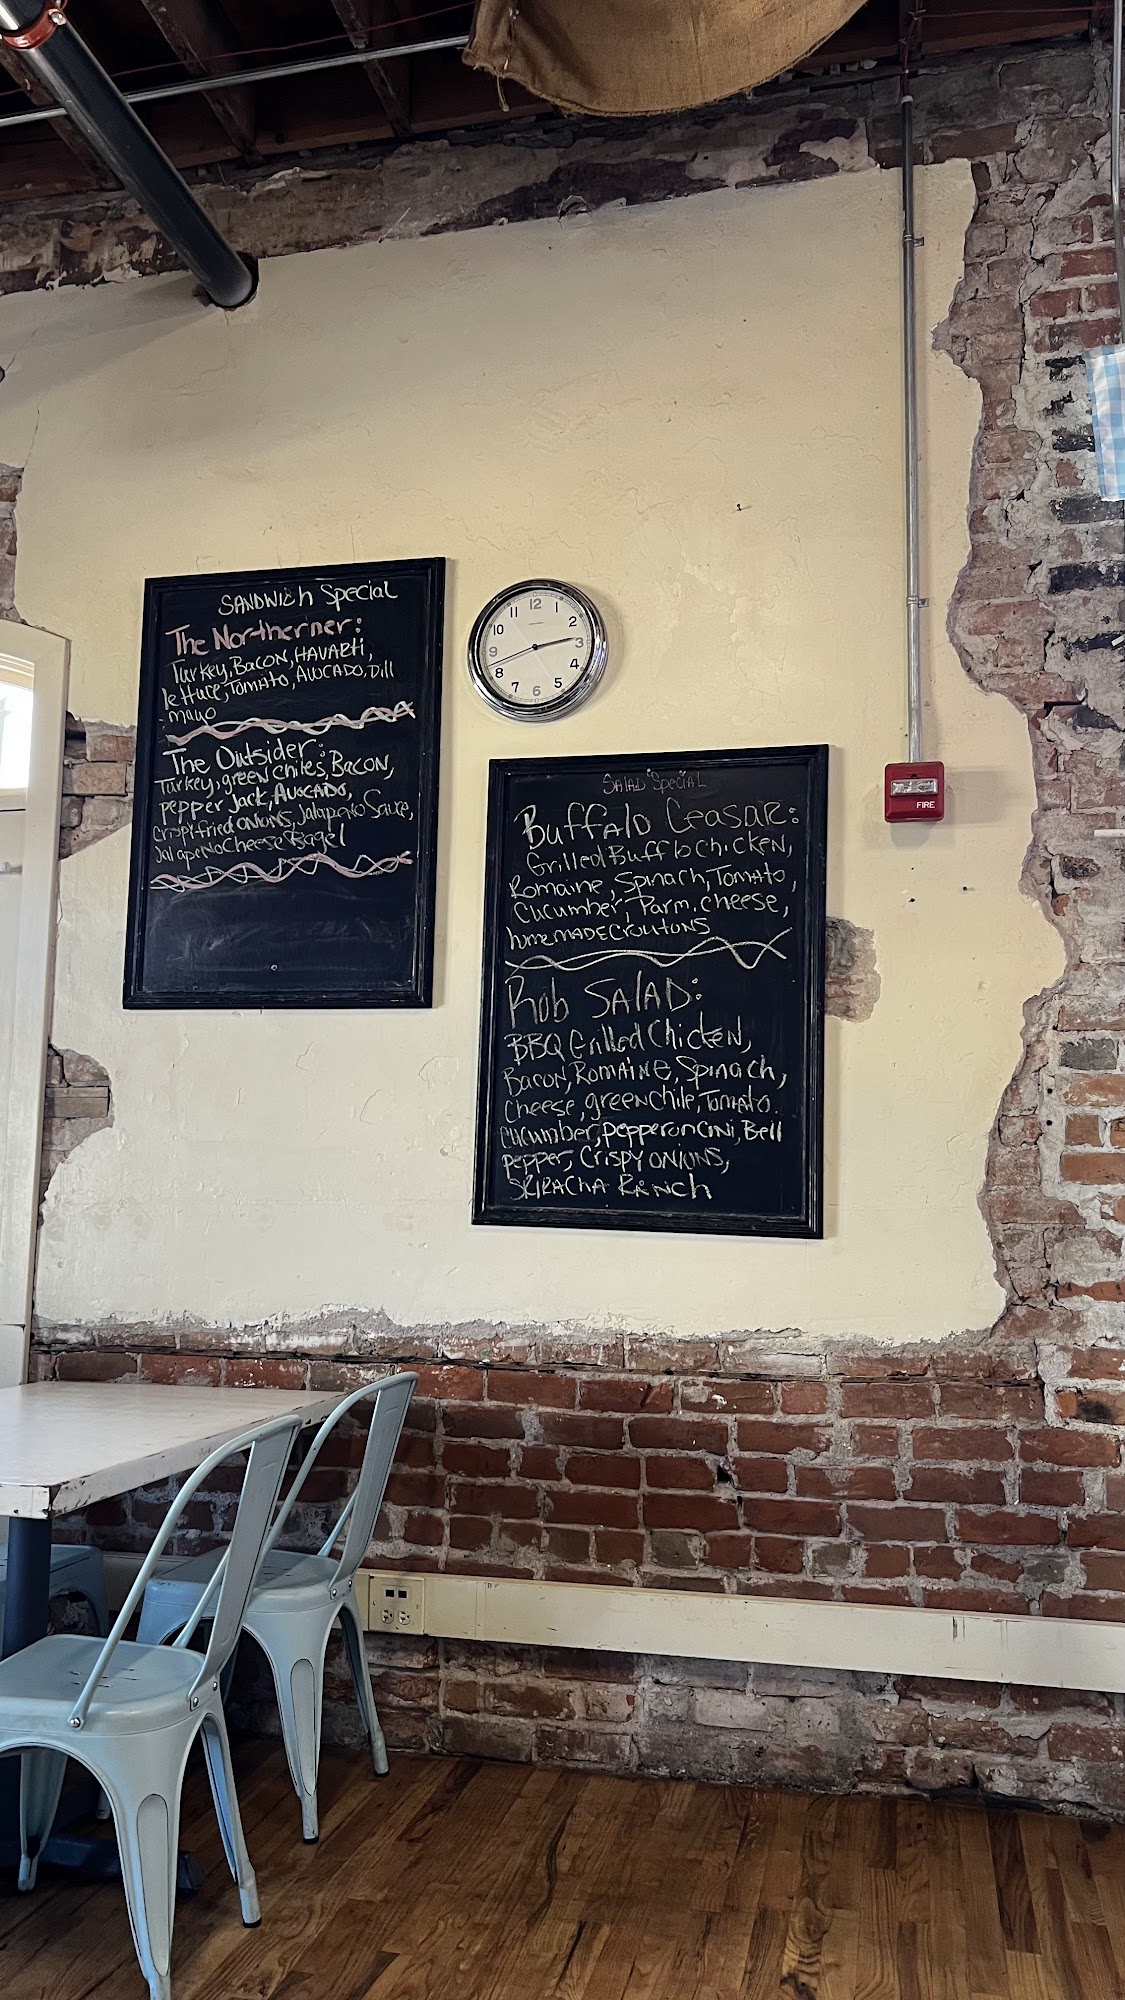 SANDWich Special
The Northerner:
Turkey, Bacon, HAVARti,
lettuce, Tomato, Avocado, Dill
mayo
The Outsider:
Turkey, green chiles, Bacon,
Pepper Jack, Avocado,
Crispy fried onions, Jalapeno Sauce,
Jalapeno Cheese Bagel
12
1
2
3
4
5
6
7
8
9
10
11
SALAD Special
Buffalo Ceasar:
Grilled Bufflo Chicken,
Romaine, Spinach, Tomato,
Cucumber, Parm. cheese,
homemade Croutons
Rob SALAD:
BBQ Grilled Chicken,
Bacon, Romaine, Spinach,
Cheese, green chile, Tomato.
Cucumber, pepperoncini, Bell
pepper, Crispy onions,
SRIRACHA Ranch
FIRE